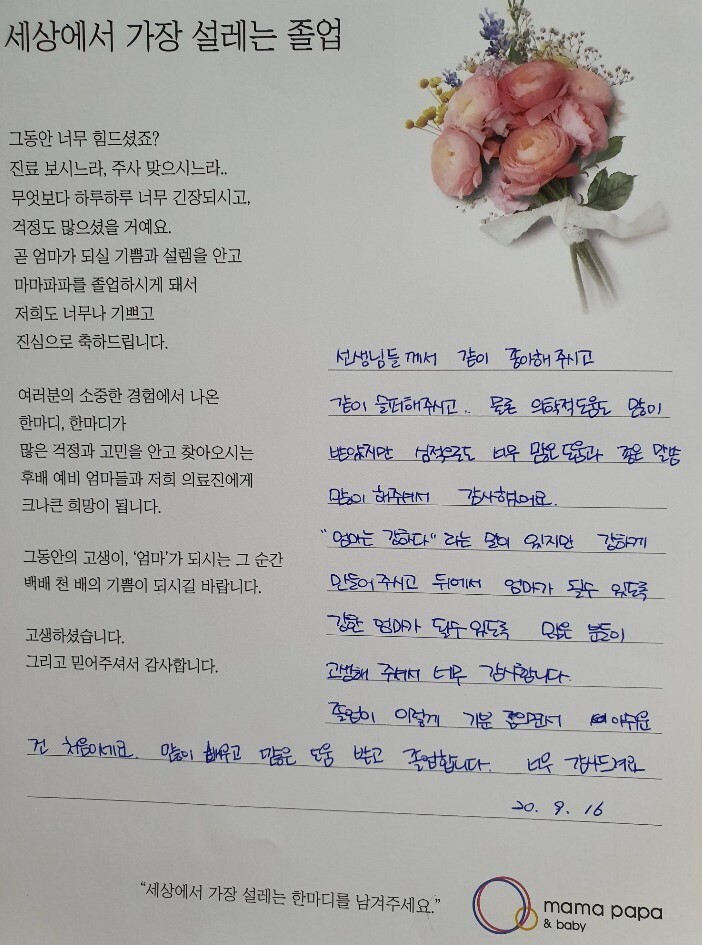 세상에서 가장 설레는 졸업
그동안 너무 힘드셨죠?
진료 보시느라, 주사 맞으시느라..
무엇보다 하루하루 너무 긴장되시고,
걱정도 많으셨을 거예요.
곧 엄마가 되실 기쁨과 설렘을 안고
마마파파를 졸업하시게 돼서
저희도 너무나 기쁘고
진심으로 축하드립니다.
여러분의 소중한 경험에서 나온
한마디, 한마디가
많은 걱정과 고민을 안고 찾아오시는
후배 예비 엄마들과 저희 의료진에게
크나큰 희망이 됩니다.
그동안의 고생이, '엄마'가 되시는 그 순간
백배 천 배의 기쁨이 되시길 바랍니다.
고생하셨습니다.
그리고 믿어주셔서 감사합니다.
선생님들께서 같이 좋아해주시고
같이 슬퍼해주시고.. 물론 의학적도움도 많이
받았지만 심적으로도 너무 많은 도움과 좋은 말씀
많이 해주셔서 감사했어요.
"엄마는 강하다" 라는 말이 있지만 강하게
만들어주시고 뒤에서 엄마가 될수 있도록
강한 엄마가 될수 있도록 많은 분들이
고생해 주셔서 너무 감사합니다.
졸업이 이렇게 기분 좋으면서 아쉬운
건 처음이에요. 많이 배우고 많은 도움 받고 졸업합니다. 너무 감사드려요
20. 9. 16
"세상에서 가장 설레는 한마디를 남겨주세요."
mama papa
& baby